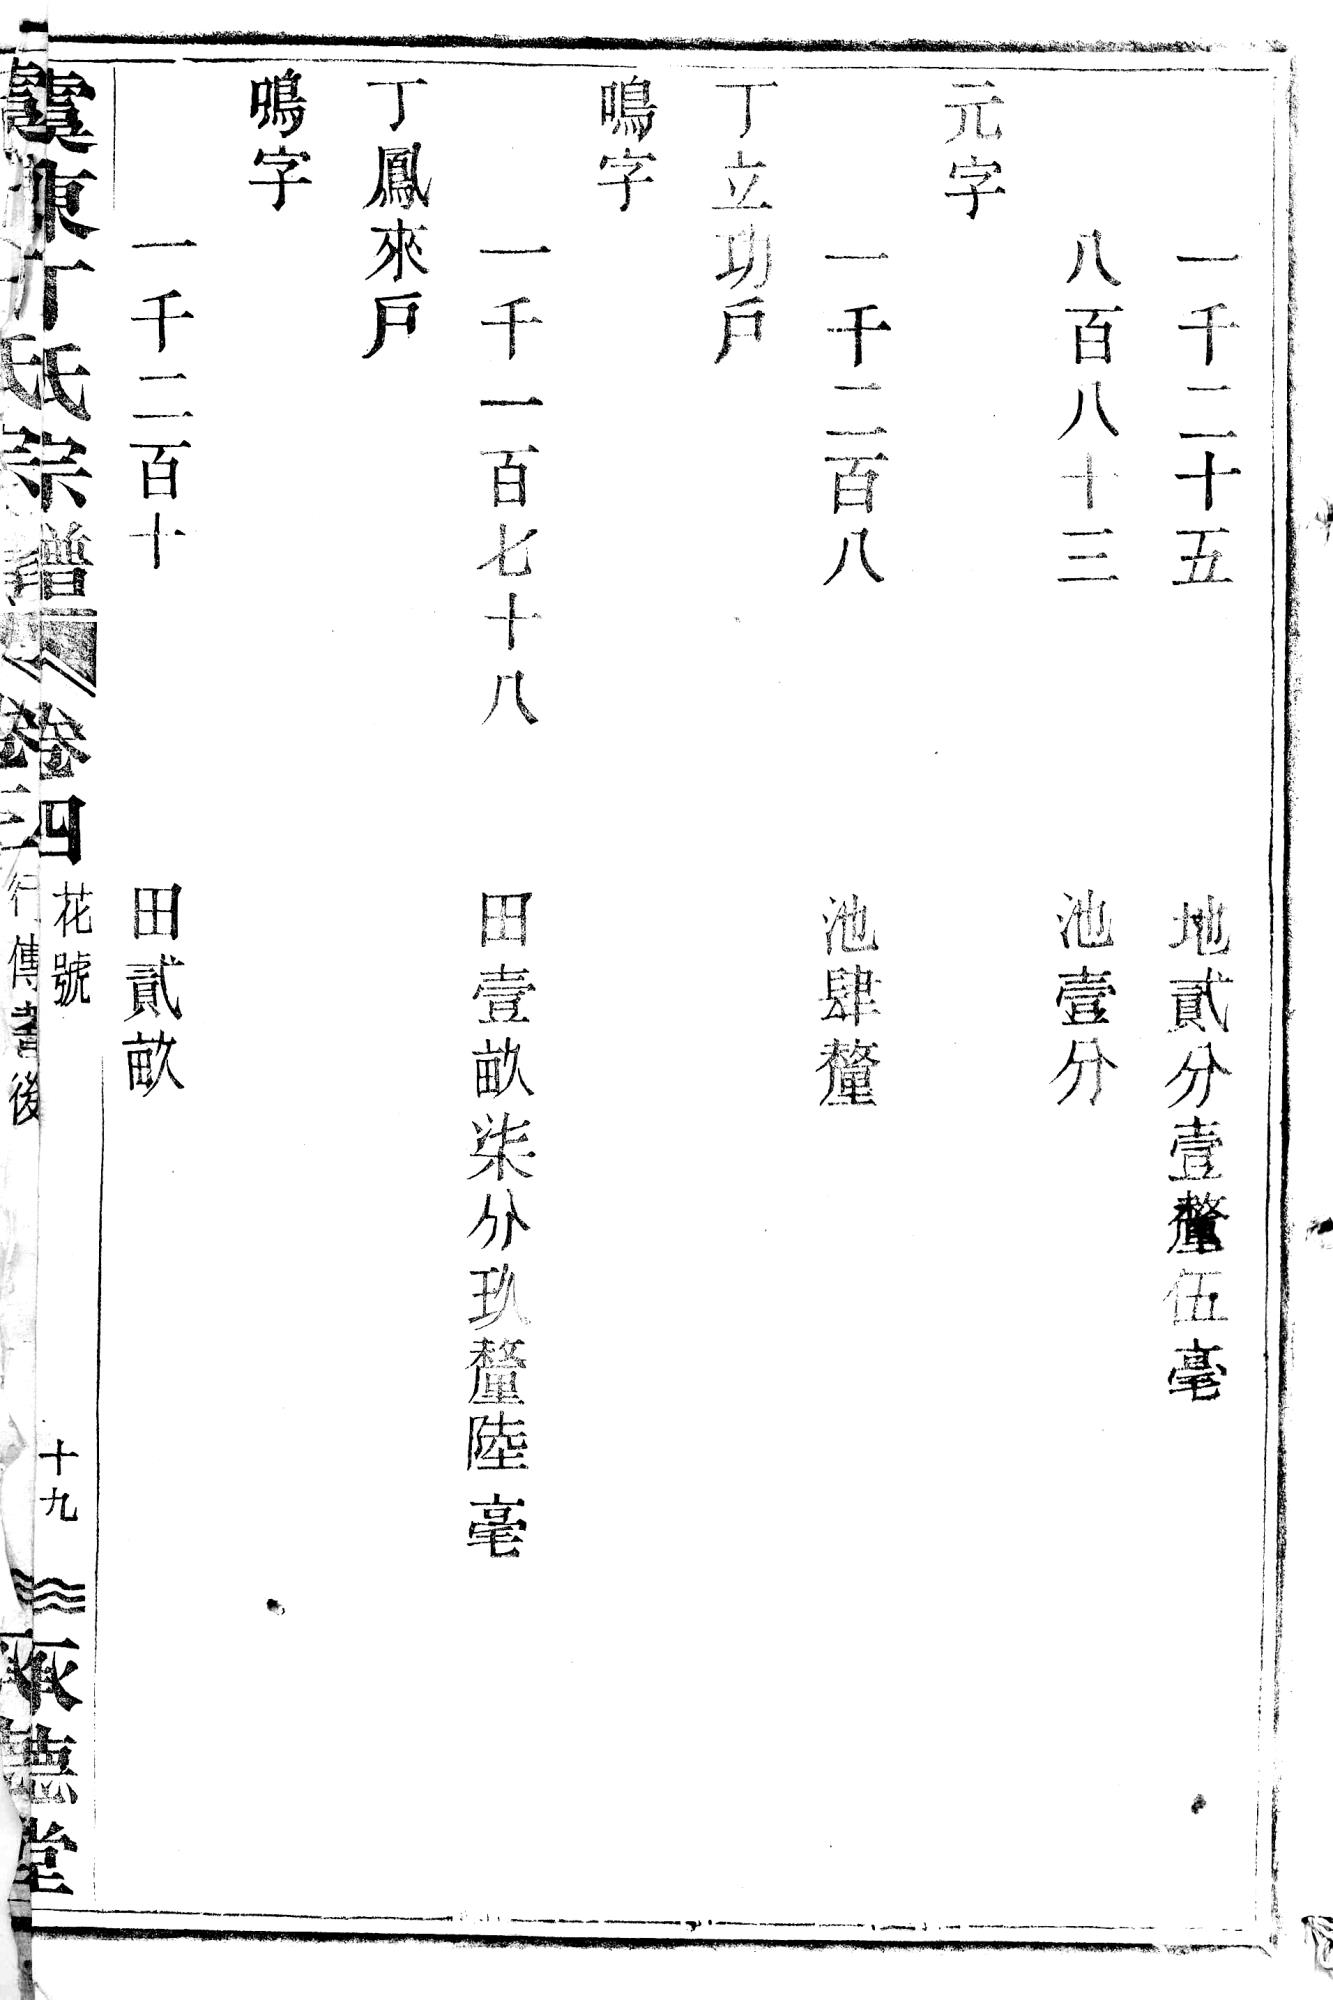 一千二十五　地貳分壹釐伍毫
八百八十三　池壹分
元字
一千二百八　池肆釐
丁立功戶
鳴字
一千一百七十八　田壹畝柒分玖釐陸毫
丁鳳來戶
鳴字
一千二百十　田貳畝
虞東丁氏宗譜　卷四　花號　十九　承德堂
卷三　行傳　後